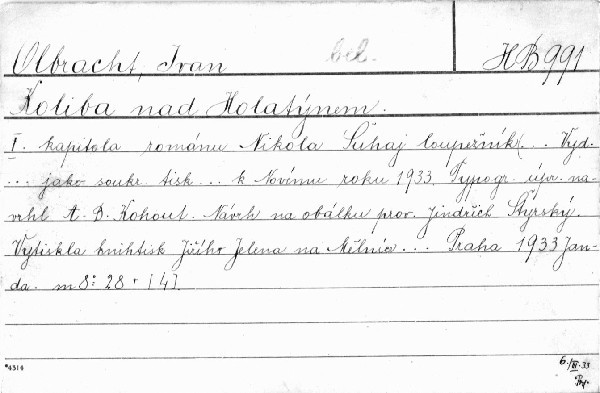 Olbracht, Ivan bel. HB 991
Koliba nad Holatýnem.
I. kapitola románu Nikola Šuhaj loupežník(... Vyd.
... jako soukr. tisk ... k Novému roku 1933. Typogr. úpr. na-
vrhl A. D. Kohout. Návrh na obálku prov. Jindřich Štýrský.
Vytiskla knihtisk. Jiřího Jelena na Mělníce ... Praha 1933 Jan-
da. m 8: 28 + [4].
*4314
6./III. 33